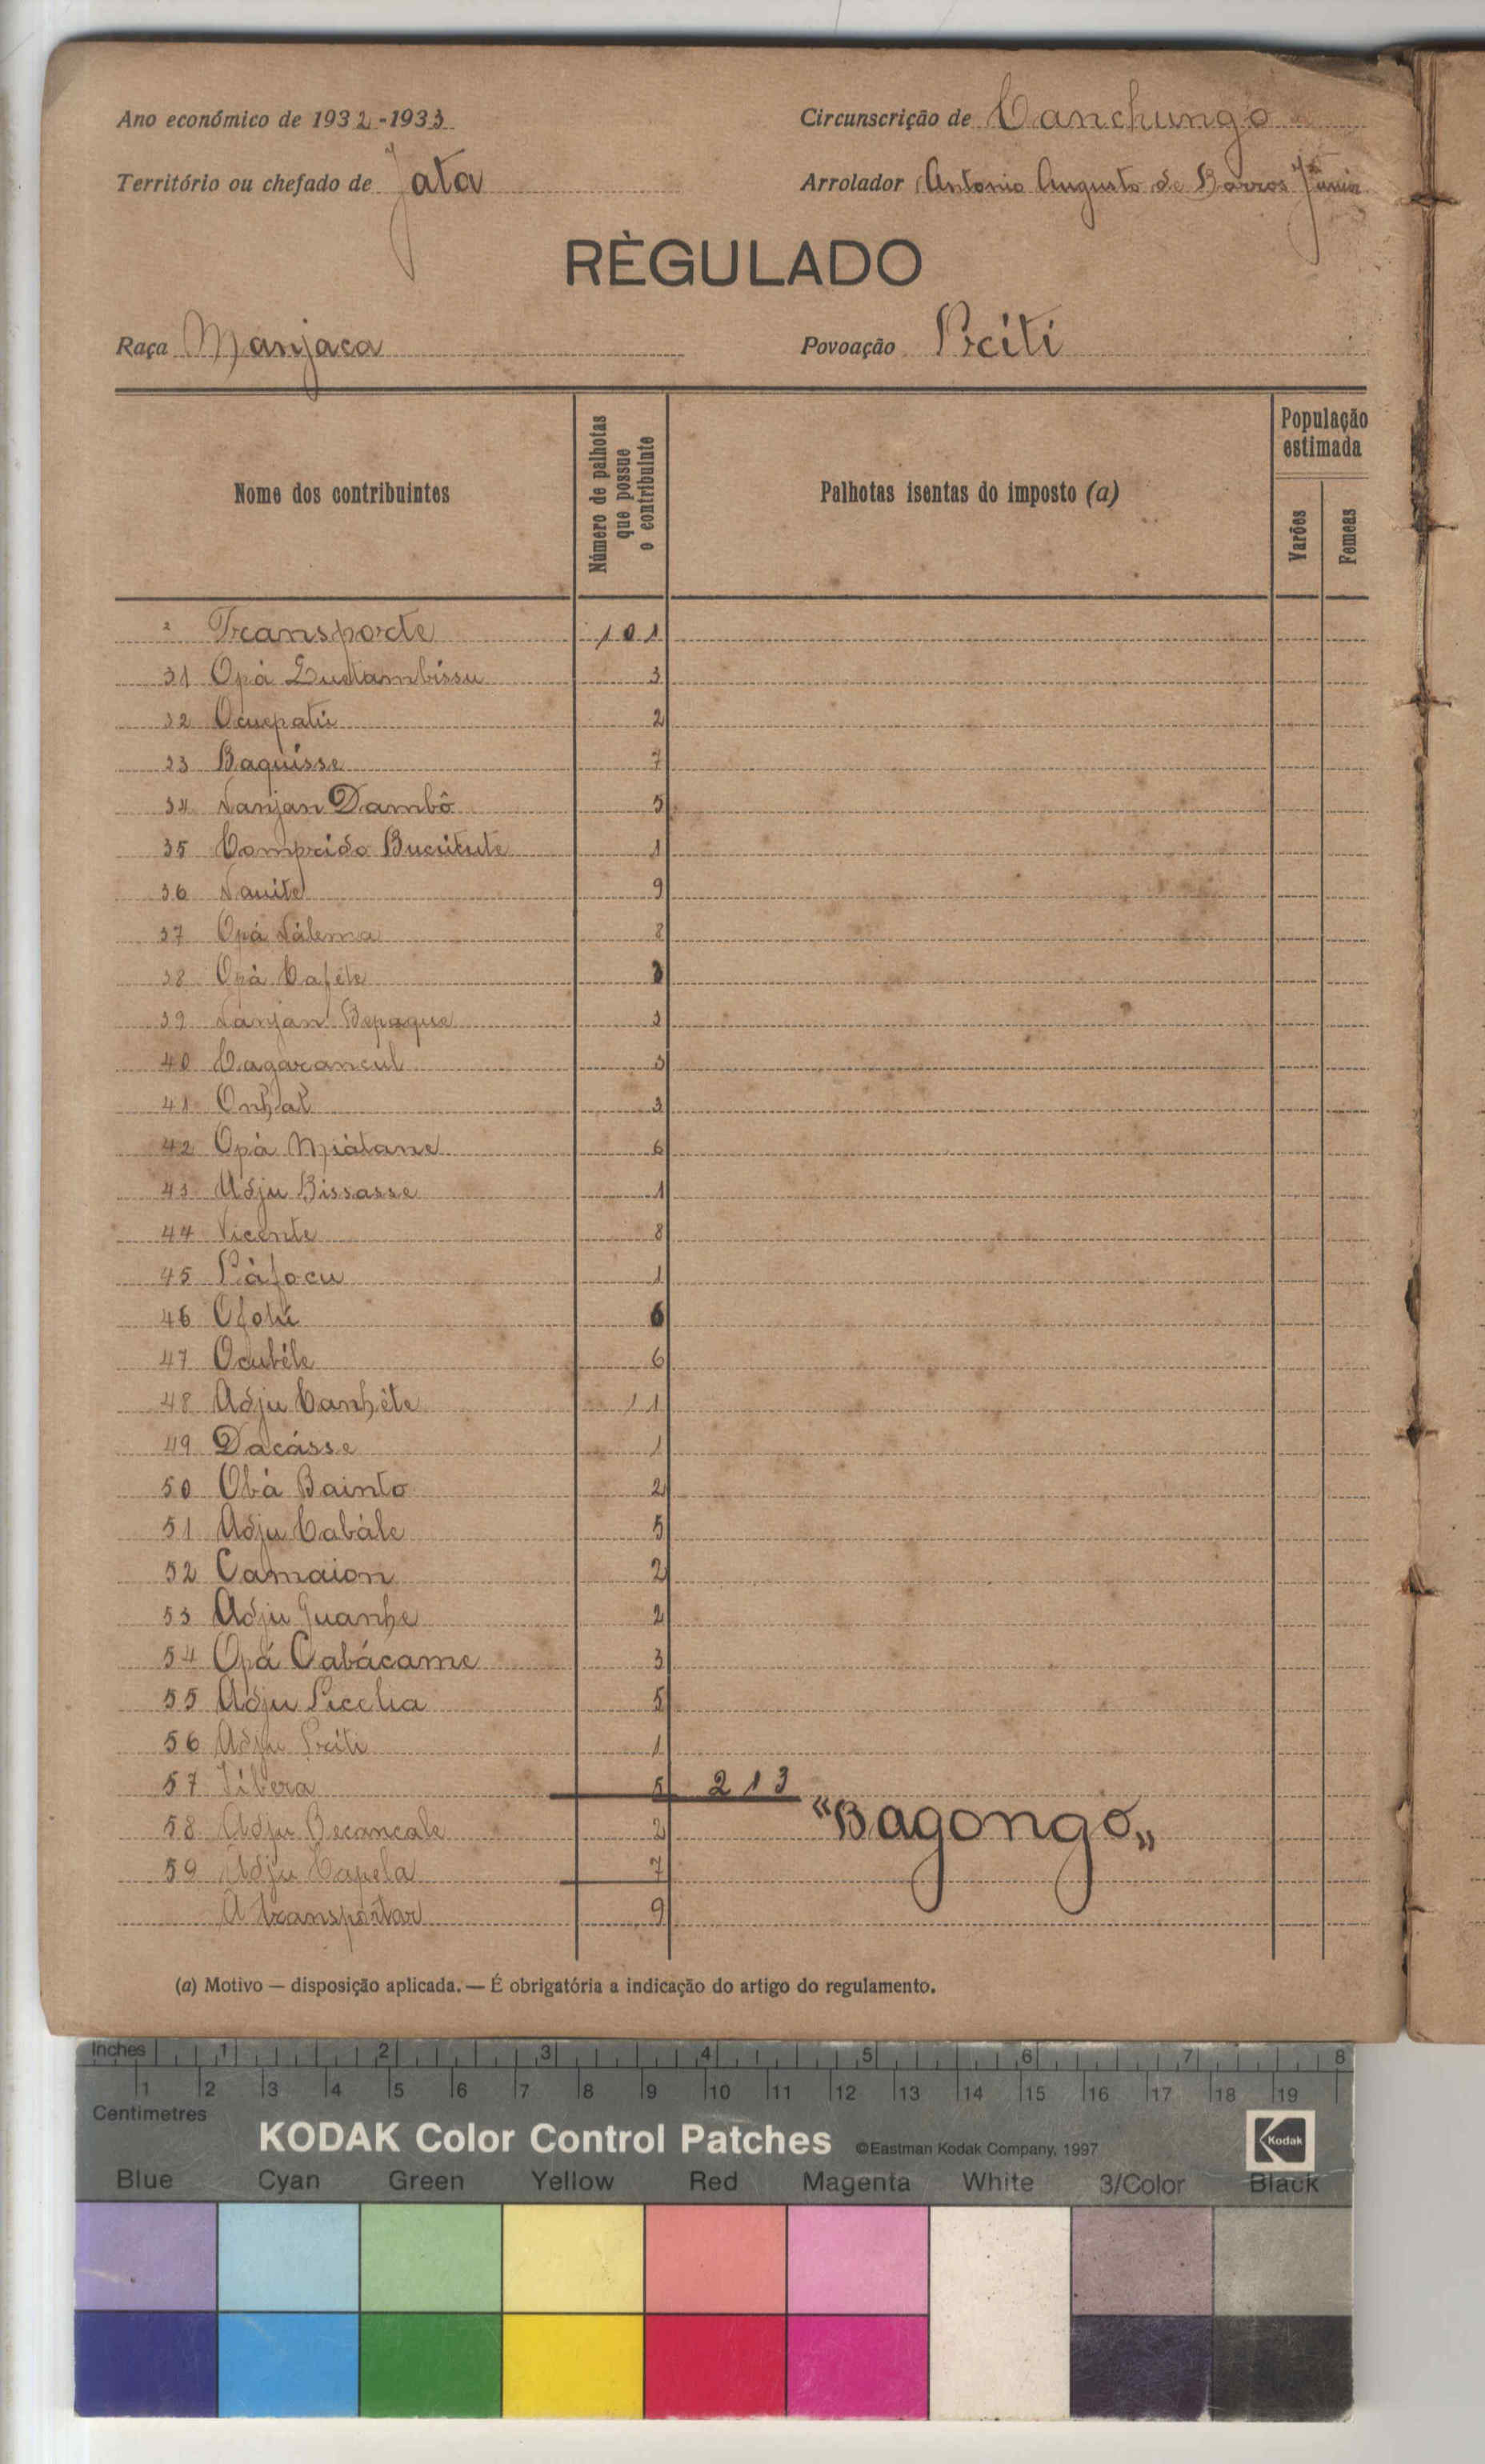 Ano económico de 1932-1933
Circunscrição de Canchungo
Território ou chefado de Jata
Arrolador Antonio Augusto de Barros Júnior
RÈGULADO
Raça Manjaca
Povoação Priti
Nome dos contribuintes
Número de palhotas que possue o contribuinte
Palhotas isentas do imposto (a)
População estimada
Varões
Femeas
Transporte 101
31 Opá 3
32 Ocuepatú 2
33 Baquisse 7
34 Lanjan Dambô 5
35 Comprido Bucútute 1
36 Nauite 9
37 Opá Lálema 8
38 Opá Caféte 3
39 Lanjan Bepaque 3
40 Cagarancul 3
41 Onhat 3
42 Opá Miàtane 6
43 Adju Bissasse 1
44 Vicente 8
45 Páfocu 1
46 Ofotú 6
47 Ocubéle 6
48 Adju Canhéte 11
49 Dacásse 1
50 Obá Bainto 2
51 Adju Cabále 5
52 Camaion 2
53 Adju Juanhe 2
54 Opá Cabácame 3
55 Adju Picelia 5
56 Adju Priti 1
57 Jíbera 5 213
«Bagongo»
58 Adju Becancale 2
59 Adju Capela 7
A transportar 9
(a) Motivo — disposição aplicada. — É obrigatória a indicação do artigo do regulamento.
Inches 1 2 3 4 5 6 7 8
1 2 3 4 5 6 7 8 9 10 11 12 13 14 15 16 17 18 19
Centimetres
KODAK Color Control Patches ©Eastman Kodak Company, 1997 Kodak
Blue Cyan Green Yellow Red Magenta White 3/Color Black